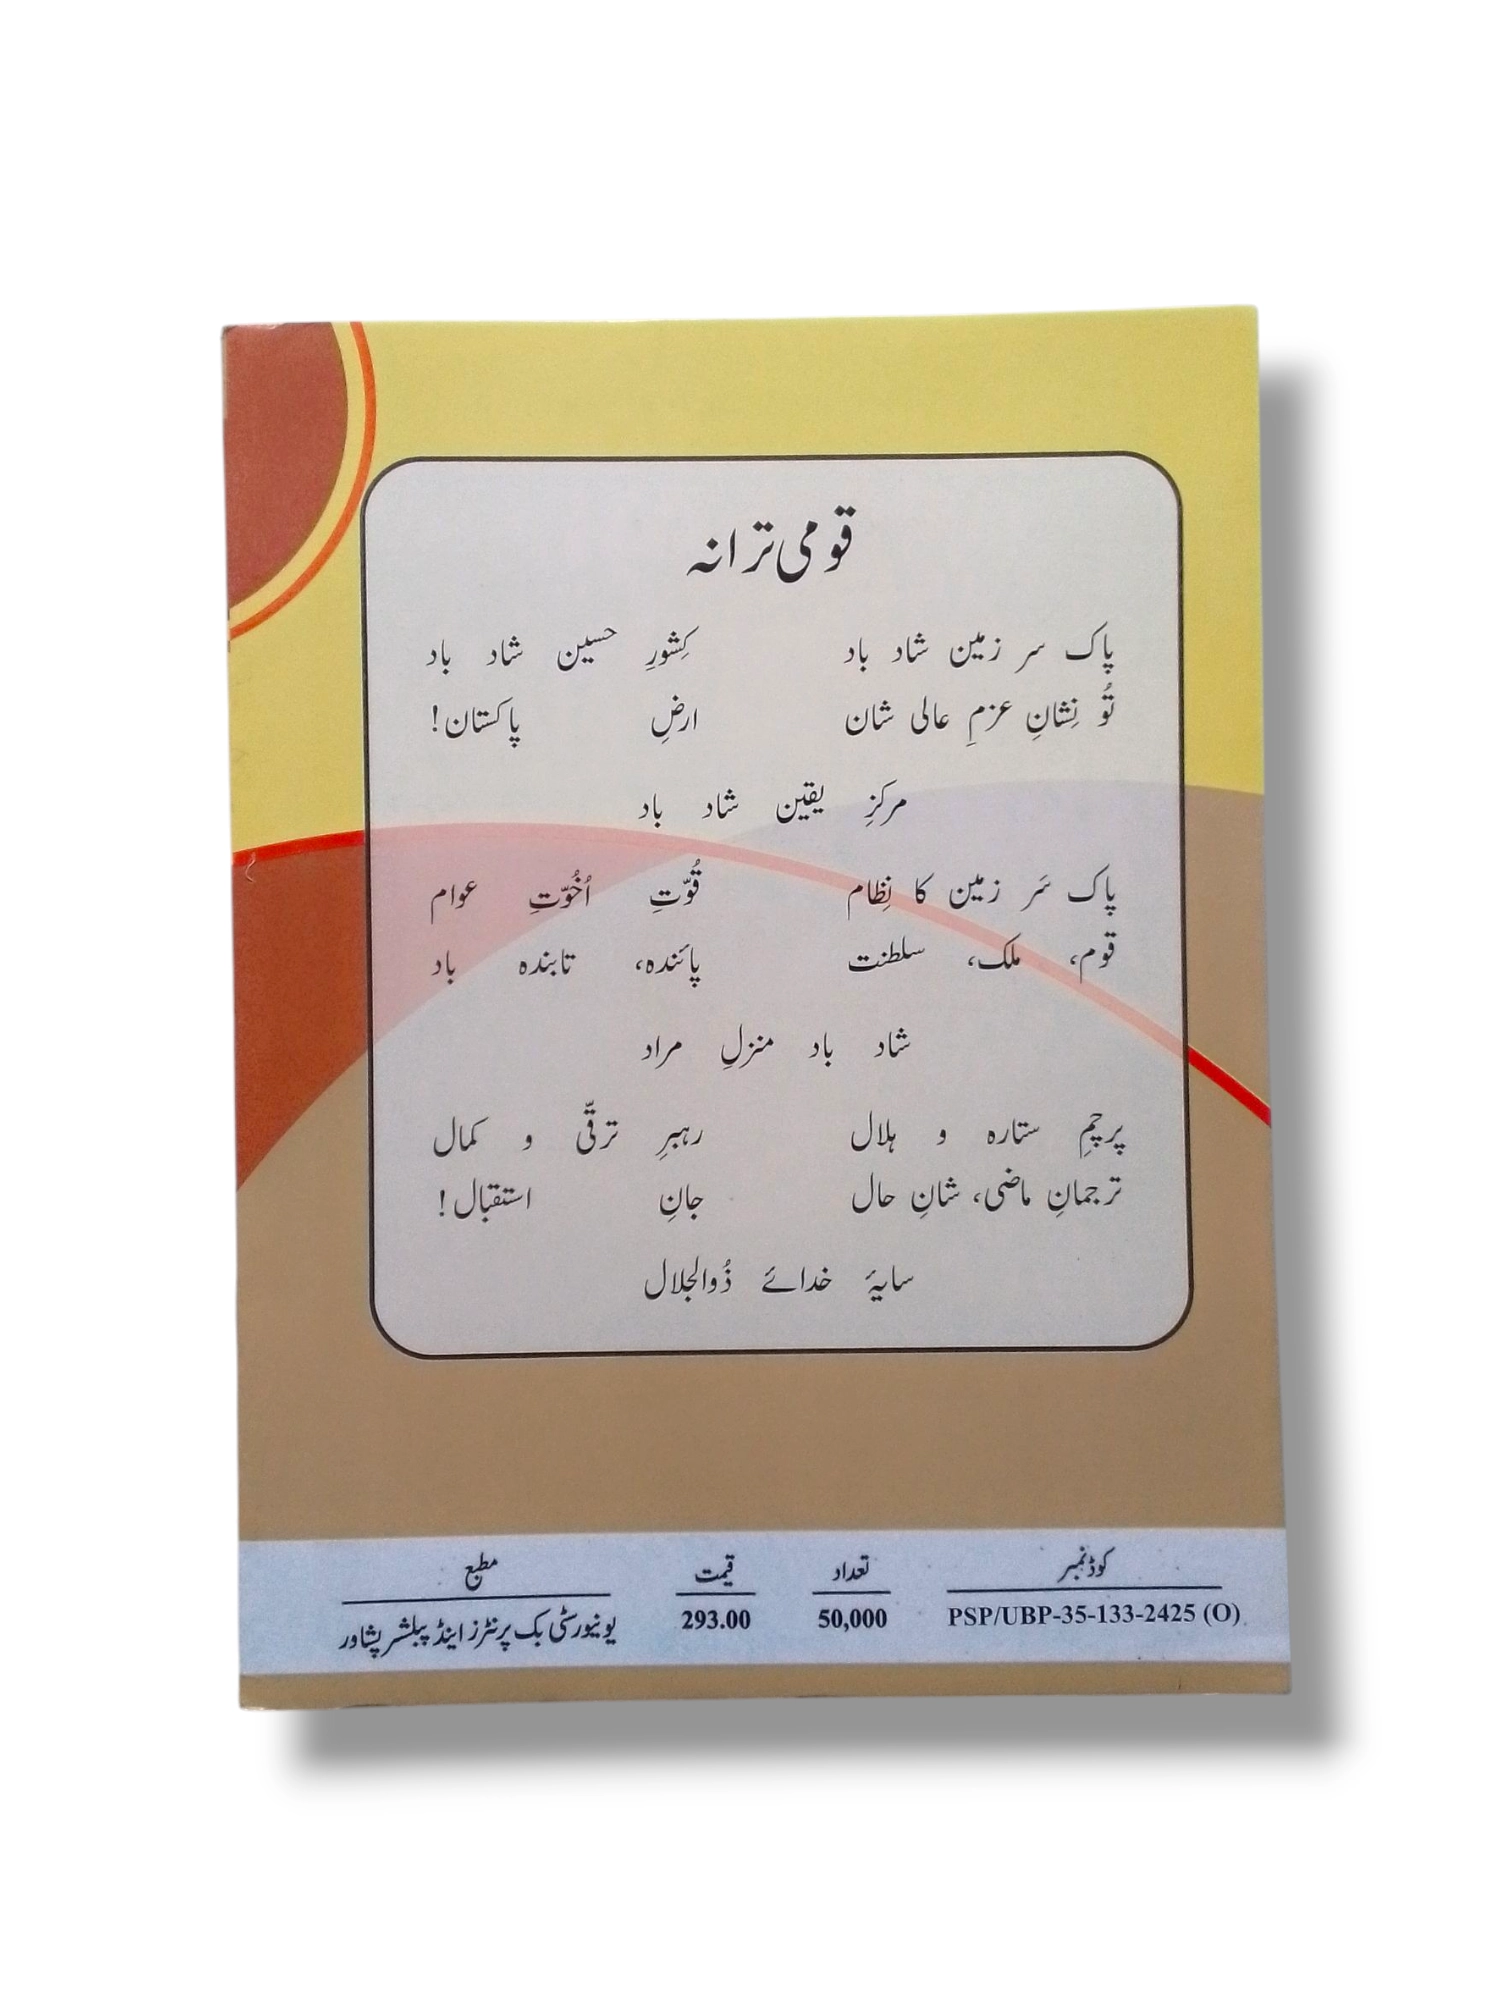 قومی ترانہ
پاک سر زمین شاد باد کِشورِ حسین شاد باد
تُو نِشانِ عزمِ عالی شان ارضِ پاکستان!
مرکزِ یقین شاد باد
پاک سَر زمین کا نِظام قُوّتِ اُخُوّتِ عوام
قوم، ملک، سلطنت پائندہ، تابندہ باد
شاد باد منزلِ مراد
پرچمِ ستارہ و ہلال رہبرِ ترقّی و کمال
ترجمانِ ماضی، شانِ حال جانِ استقبال!
سایۂ خدائے ذُوالجلال
کوڈ نمبر تعداد قیمت مطبع
PSP/UBP-35-133-2425 (O) 50,000 293.00 یونیورسٹی بک پرنٹرز اینڈ پبلشر پشاور